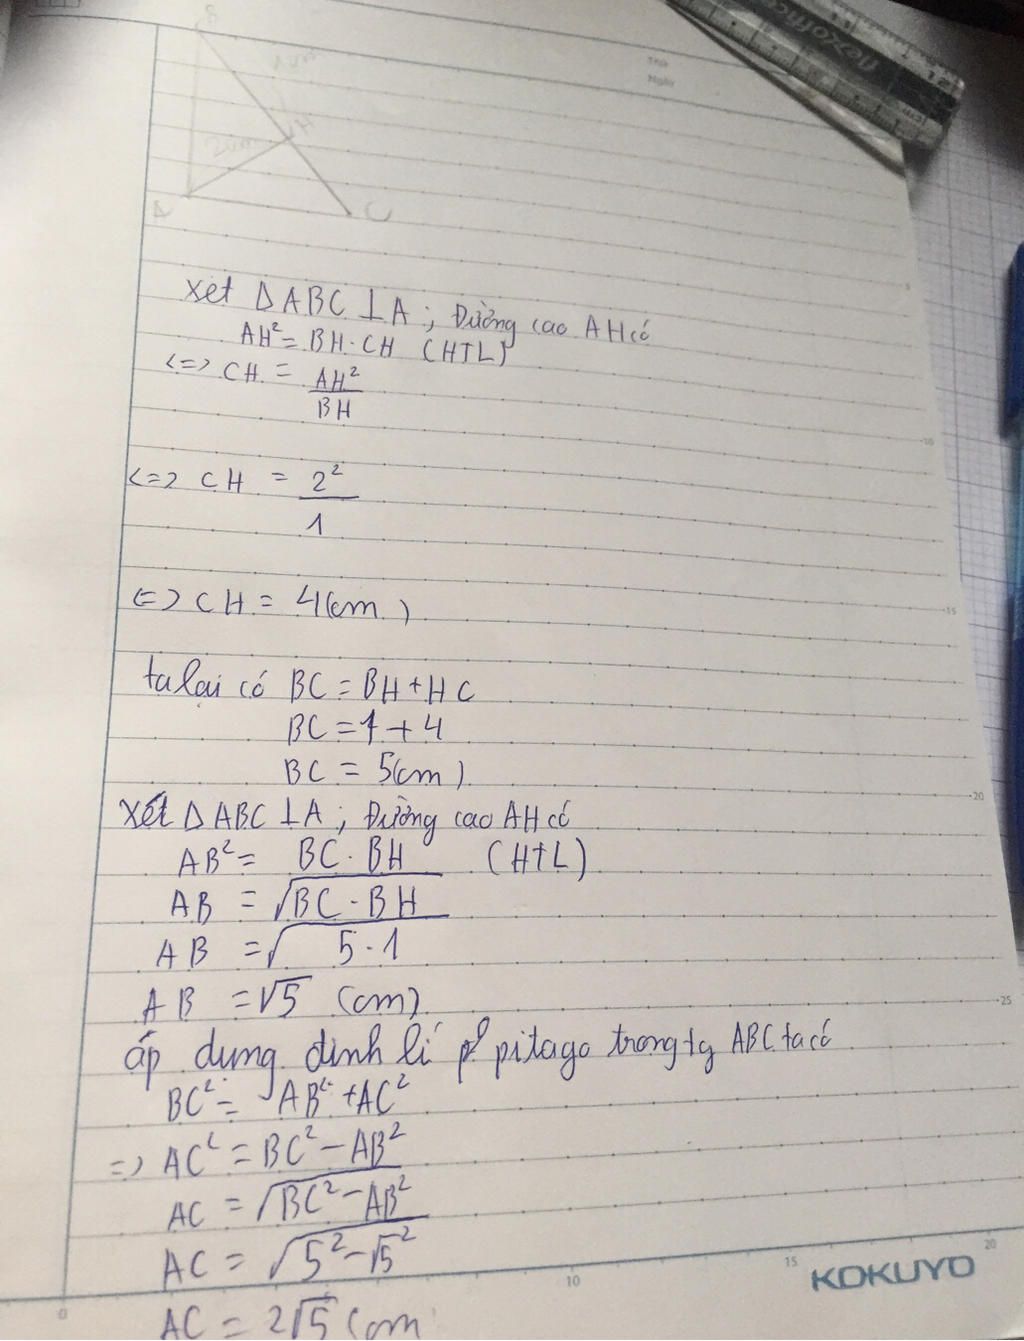 B
1cm
H
2cm
A
C
flexoffice
xét ΔABC ⊥ A ; Đường cao AH có
AH² = BH · CH (HTL)
<=> CH = AH² / BH
<=> CH = 2² / 1
<=> CH = 4 (cm)
ta lại có BC = BH + HC
BC = 1 + 4
BC = 5 (cm)
Xét ΔABC ⊥ A ; Đường cao AH có
AB² = BC · BH (HTL)
AB = √BC · BH
AB = √5 · 1
AB = √5 (cm)
áp dụng định lí pitago trong tg ABC ta có
BC² = AB² + AC²
=> AC² = BC² - AB²
AC = √BC² - AB²
AC = √5² - √5²
AC = 2√5 (cm
5
10
15
20
25
0
10
15
20
KOKUYO